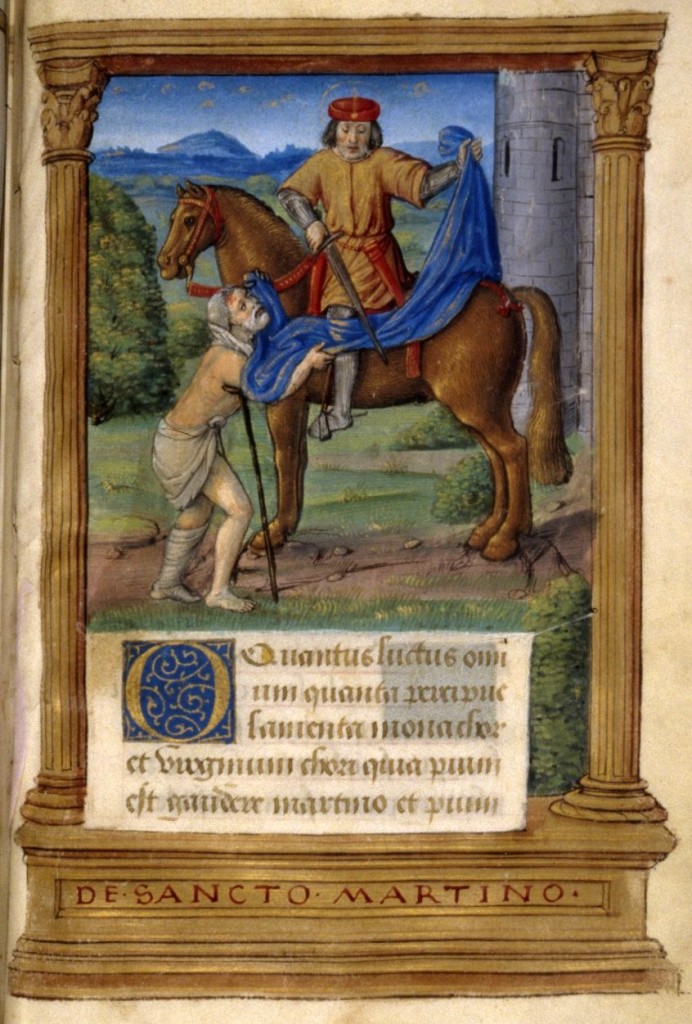 O Quantus luctus omi
um quanta precipue
lamenta monachor
et virginum chori quia pium
est gaudere martino et pium
DE·SANCTO·MARTINO·